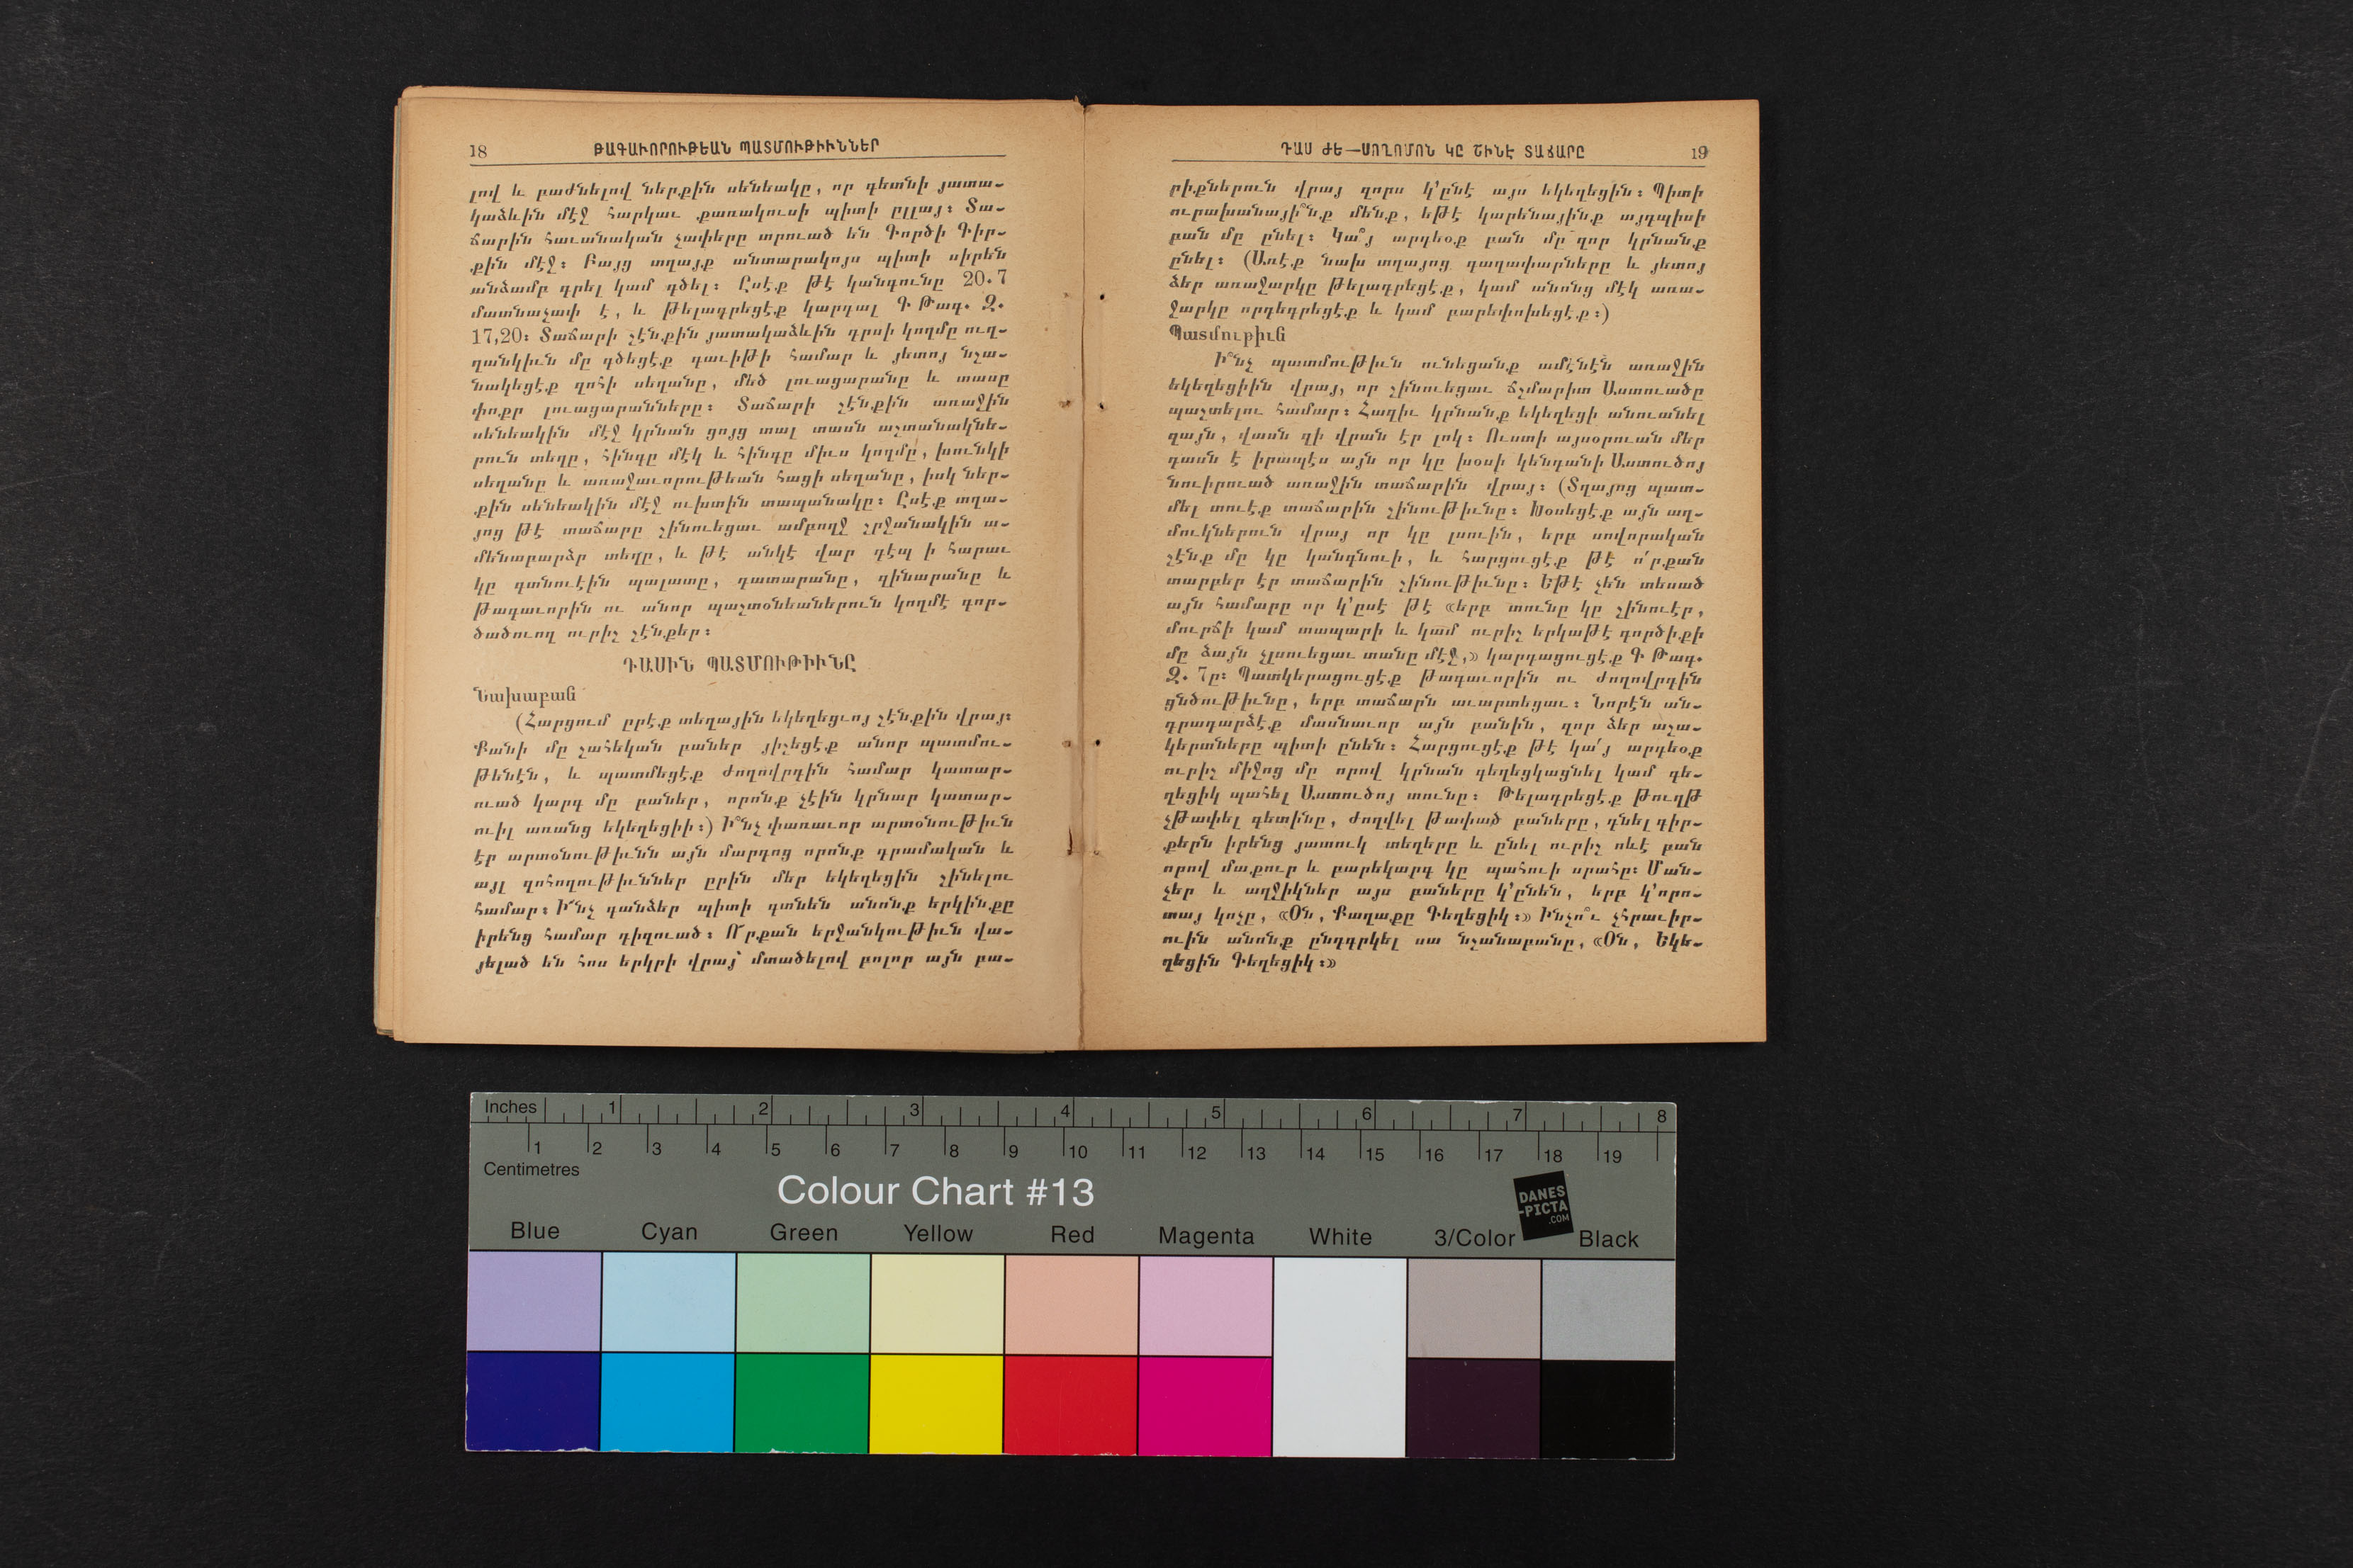 18 ԹԱԳԱՒՈՐՈՒԹԵԱՆ ՊԱՏՄՈՒԹԻՒՆՆԵՐ
լով և բաժնելով ներքին սենեակը, որ գետնի յատա-
կաձևին մէջ հարկաւ քառակուսի պիտի ըլլայ։ Տա-
ճարին հաւանական չափերը տրուած են Գործի Գիր-
քին մէջ։ Բայց տղայք անտարակոյս պիտի սիրեն
անձամբ գրել կամ գծել։ Ըսէք թէ կանգունը 20.7
մատնաչափ է, և թելադրեցէք կարդալ Գ Թագ. Զ.
17,20։ Տաճարի շէնքին յատակաձևին դրսի կողմը ուղ-
ղանկիւն մը գծեցէք գաւիթի համար և յետոյ նշա-
նակեցէք զոհի սեղանը, մեծ լուացարանը և տասը
փոքր լուացարանները։ Տաճարի շէնքին առաջին
սենեակին մէջ կրնան ցոյց տալ տասն աշտանակնե-
րուն տեղը, հինգը մէկ և հինգը միւս կողմը, խունկի
սեղանը և առաջաւորութեան հացի սեղանը, իսկ ներ-
քին սենեակին մէջ ուխտին տապանակը։ Ըսէք տղա-
յոց թէ տաճարը շինուեցաւ ամբողջ շրջանակին ա-
մենաբարձր տեղը, և թէ անկէ վար դէպ ի հարաւ
կը գտնուէին պալատը, դատարանը, զինարանը և
թագաւորին ու անոր պաշտօնեաներուն կողմէ գոր-
ծածուող ուրիշ շէնքեր։
ԴԱՍԻՆ ՊԱՏՄՈՒԹԻՒՆԸ
Նախաբան
(Հարցում ըրէք տեղային եկեղեցւոյ շէնքին վրայ։
Քանի մը շահեկան բաներ յիշեցէք անոր պատմու-
թենէն, և պատմեցէք ժողովրդին համար կատար-
ուած կարգ մը բաներ, որոնք չէին կրնար կատար-
ուիլ առանց եկեղեցիի։) Ի՞նչ փառաւոր արտօնութիւն
էր արտօնութիւնն այն մարդոց որոնք դրամական և
այլ զոհողութիւններ ըրին մեր եկեղեցին շինելու
համար։ Ի՜նչ գանձեր պիտի գտնեն անոնք երկինքը
իրենց համար դիզուած։ Ո՜րքան երջանկութիւն վա-
յելած են հոս երկրի վրայ՝ մտածելով բոլոր այն բա-
ԴԱՍ ԺԵ—ՍՈՂՈՄՈՆ ԿԸ ՇԻՆԷ ՏԱՃԱՐԸ 19
րիքներուն վրայ զորս կ՚ընէ այս եկեղեցին։ Պիտի
ուրախանայի՞նք մենք, եթէ կարենայինք այդպիսի
բան մը ընել։ Կա՞յ արդեօք բան մը զոր կրնանք
ընել։ (Առէք նախ տղայոց գաղափարները և յետոյ
ձեր առաջարկը թելադրեցէք, կամ անոնց մէկ առա-
ջարկը որդեգրեցէք և կամ բարեփոխեցէք։)
Պատմութիւն
Ի՞նչ պատմութիւն ունեցանք ամէնէն առաջին
եկեղեցիին վրայ, որ շինուեցաւ ճշմարիտ Աստուածը
պաշտելու համար։ Հազիւ կրնանք եկեղեցի անուանել
զայն, վասն զի վրան էր լոկ։ Ուստի այսօրուան մեր
դասն է իրապէս այն որ կը խօսի կենդանի Աստուծոյ
նուիրուած առաջին տաճարին վրայ։ (Տղայոց պատ-
մել տուէք տաճարին շինութիւնը։ Խօսեցէք այն աղ-
մուկներուն վրայ որ կը լսուին, երբ սովորական
շէնք մը կը կանգնուի, և հարցուցէք թէ ո՛րքան
տարբեր էր տաճարին շինութիւնը։ Եթէ չեն տեսած
այն համարը որ կ՚ըսէ թէ «երբ տունը կը շինուէր,
մուրճի կամ տապարի և կամ ուրիշ երկաթէ գործիքի
մը ձայն չլսուեցաւ տանը մէջ,» կարդացուցէք Գ Թագ.
Զ. 7ը։ Պատկերացուցէք թագաւորին ու ժողովրդին
ցնծութիւնը, երբ տաճարն աւարտեցաւ։ Նորէն ան-
դրադարձէք մասնաւոր այն բանին, զոր ձեր աշա-
կերտները պիտի ընեն։ Հարցուցէք թէ կա՛յ արդեօք
ուրիշ միջոց մը որով կրնան գեղեցկացնել կամ գե-
ղեցիկ պահել Աստուծոյ տունը։ Թելադրեցէք թուղթ
չթափել գետինը, ժողվել թափած բաները, դնել գիր-
քերն իրենց յատուկ տեղերը և ընել ուրիշ ոևէ բան
որով մաքուր և բարեկարգ կը պահուի սրահը։ Ման-
չեր և աղջիկներ այս բաները կ՚ընեն, երբ կ՚որո-
տայ կոչը, «Օն, Քաղաքը Գեղեցիկ։» Ինչո՞ւ չհրաւիր-
ուին անոնք ընդգրկել սա նշանաբանը, «Օն, Եկե-
ղեցին Գեղեցիկ։»
Inches 1 2 3 4 5 6 7 8
1 2 3 4 5 6 7 8 9 10 11 12 13 14 15 16 17 18 19
Centimetres
Colour Chart #13
DANES
-PICTA
.COM
Blue Cyan Green Yellow Red Magenta White 3/Color Black